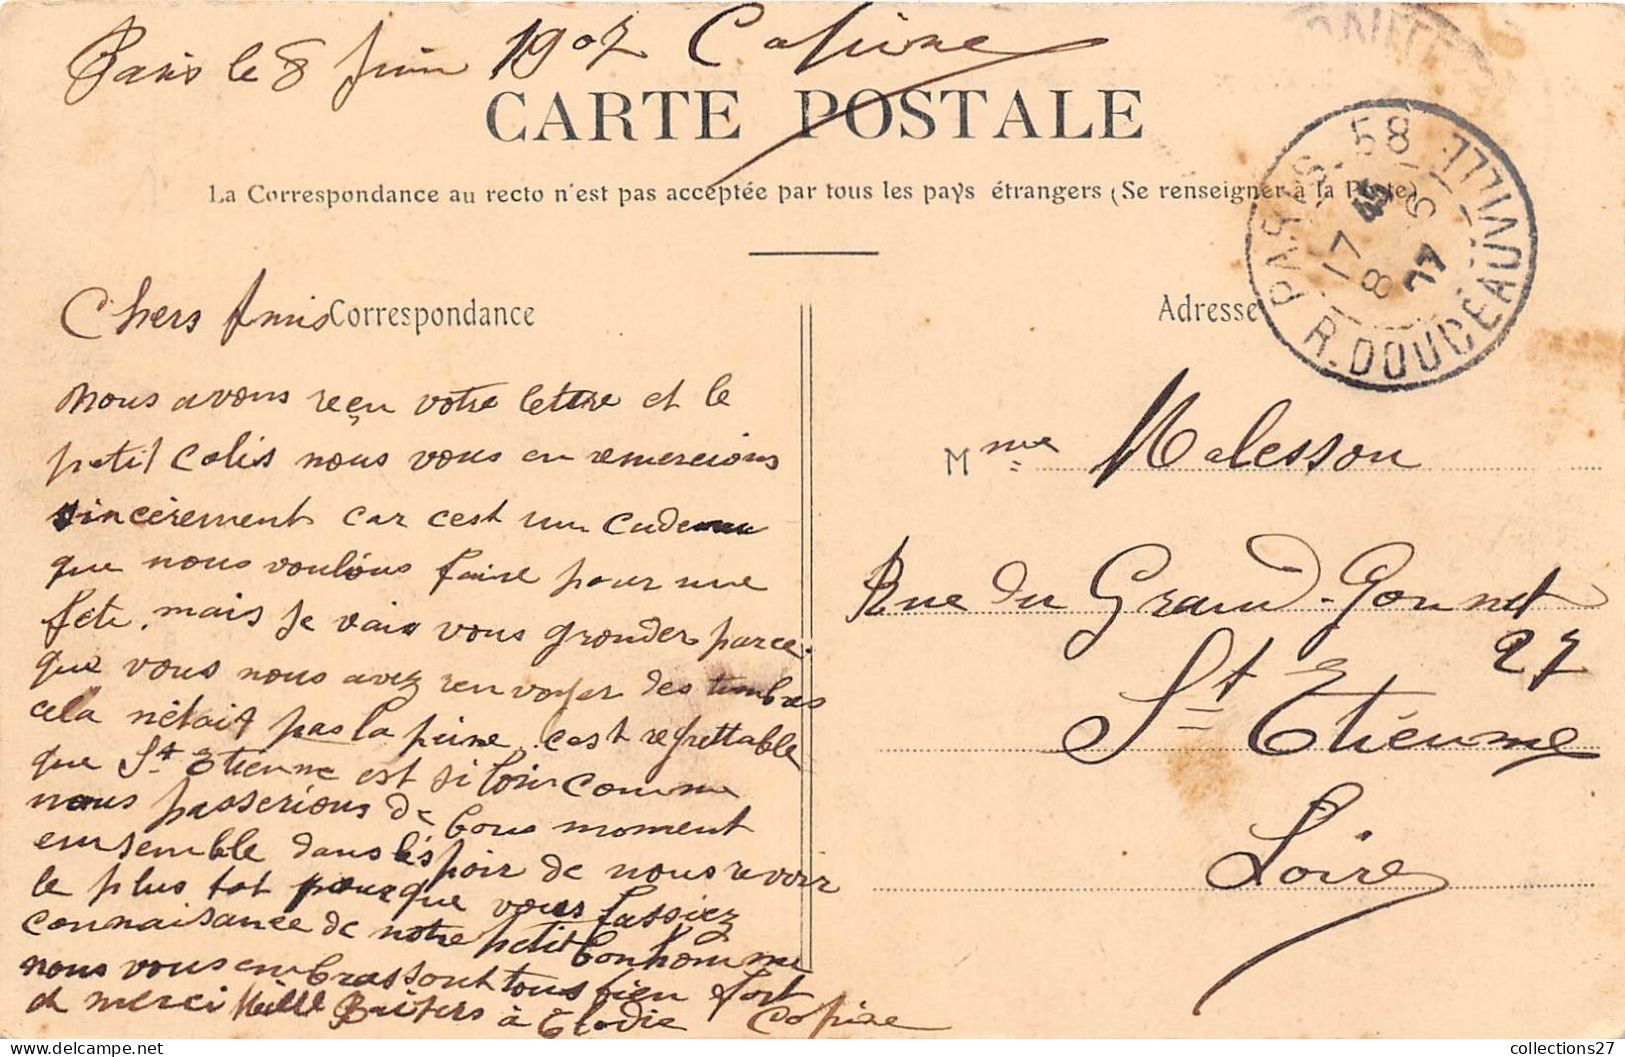 Paris le 8 Juin 1907 Cofine
CARTE POSTALE
La Correspondance au recto n'est pas acceptée par tous les pays étrangers (Se renseigner à la Poste)
PARIS. 58 R. DOUDEAUVILLE
17 45
8 6
07
Correspondance
Adresse
Chers Amis
nous avons reçu votre lettre et le
petit colis nous vous en remercions
sincèrement car cest un cadeau
que nous voulions faire pour une
fête, mais je vais vous gronder parce
que vous nous avez renvoyer des timbres
cela nétait pas la peine. cest regrettable
que St Etienne est si loin comme
nous passerions de bons moment
ensemble dans léspoir de nous revoir
le plus tot pour que vous fassiez
connaisance de notre petit bonhomme
nous vous embrassont tous bien fort
et merci Mille Baisers à Elodie Cofine
Mme Malesson
Rue du Grand-Gonnet
27
St Etienne
Loire
collections27